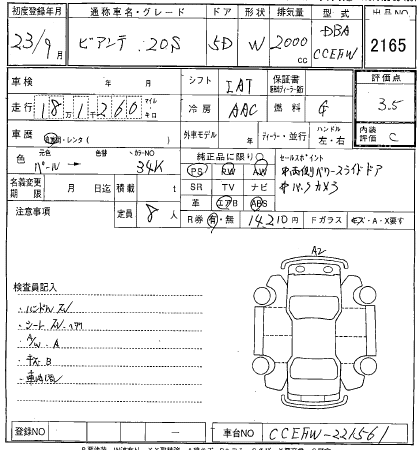 初度登録年月 通称車名・グレード ドア 形状 排気量 型式 出品NO
23/9月 ビアンテ 20S 5D W 2000cc DBA CCEFW 2165
車検 年 月 シフト IAT 保証書 評価点
走行 18万1千260 マイル キロ 冷房 AAC 燃料 G 3.5
車歴 自家用・レンタ( ) 外車モデル 年 ディーラー・並行 ハンドル 左・右 内装評価 C
色 元色 パール 色替 カラーNO 34K 純正品に限り○ セールスポイント
PS PW AW 両側パワースライドドア
名義変更期限 月 日迄 積載 t SR TV ナビ バックカメラ
革 エアB ABS
注意事項 定員 8人 R券 有・無 14210円 Fガラス キズ・A・X要す
A2
検査員記入
・ハンドルスレ
・シートスレ
・A/W・A
・キズ B
登録NO ー 車台NO CCEFW-221561